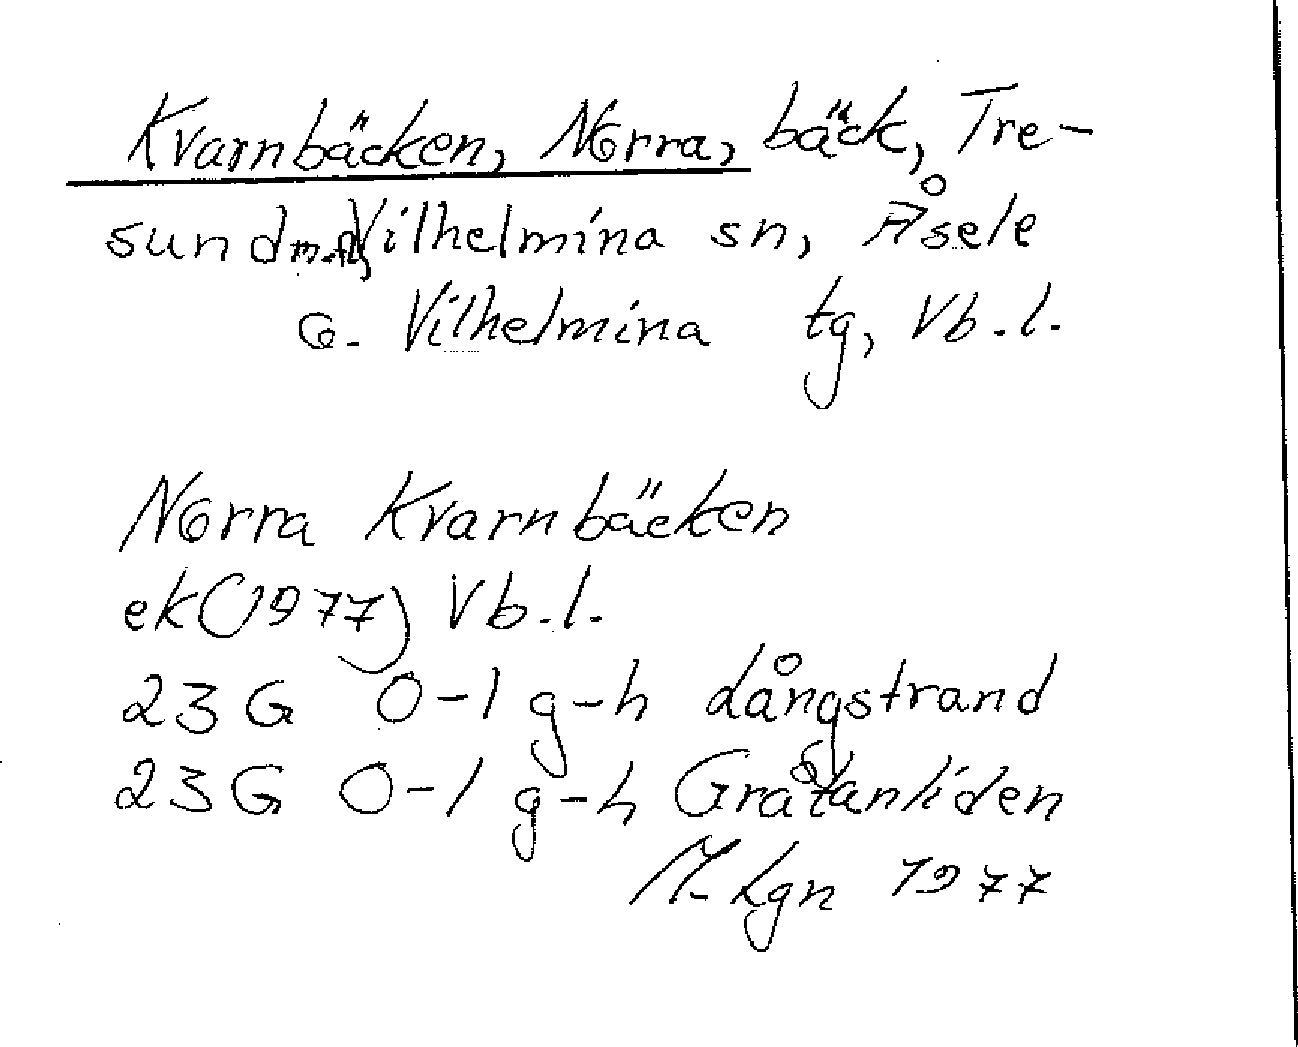 Kvarnbäcken, Norra, bäck, Tre-
sund m.fl., Vilhelmina sn, Åsele
o. Vilhelmina tg, Vb.l.
Norra Kvarnbäcken
ek (1977) Vb.l.
23 G 0-1 g-h Långstrand
23 G 0-1 g-h Gråtanliden
Lgn 1977